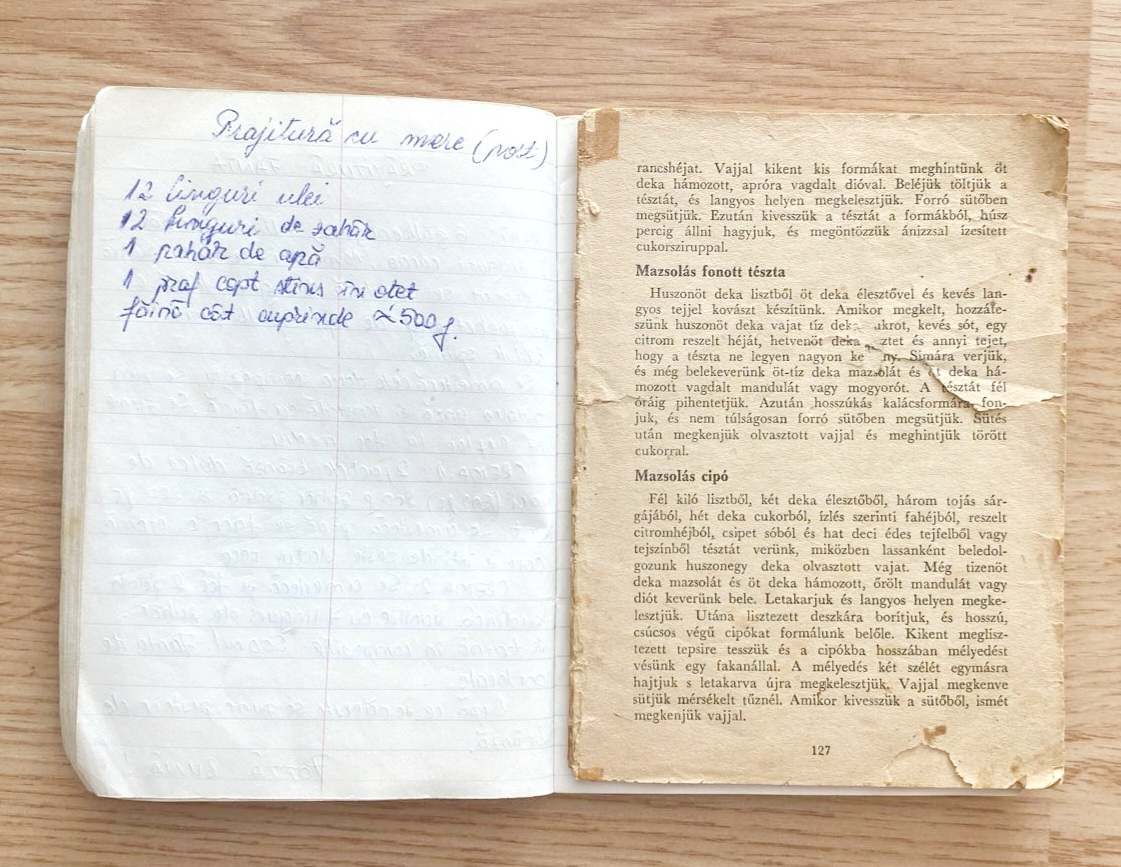 Prajitură cu mere (post)
12 linguri ulei
12 linguri de zahăr
1 pahar de apă
1 praf copt stins în otet
făină cât cuprinde ≈ 500g.
rancshéjat. Vajjal kikent kis formákat meghintünk öt
deka hámozott, apróra vagdalt dióval. Beléjük töltjük a
tésztát, és langyos helyen megkelesztjük. Forró sütőben
megsütjük. Ezután kivesszük a tésztát a formákból, húsz
percig állni hagyjuk, és megöntözzük ánizzsal ízesített
cukorsziruppal.
Mazsolás fonott tészta
Huszonöt deka lisztből öt deka élesztővel és kevés lan-
gyos tejjel kovászt készítünk. Amikor megkelt, hozzáte-
szünk huszonöt deka vajat tíz deka ukrot, kevés sót, egy
citrom reszelt héját, hetvenöt deka ztet és annyi tejet,
hogy a tészta ne legyen nagyon ke ny. Simára verjük,
és még belekeverünk öt-tíz deka mazsolát és öt deka há-
mozott vagdalt mandulát vagy mogyorót. A tésztát fél
óráig pihentetjük. Azután hosszúkás kalácsformára fon-
juk, és nem túlságosan forró sütőben megsütjük. Sütés
után megkenjük olvasztott vajjal és meghintjük törött
cukorral.
Mazsolás cipó
Fél kiló lisztből, két deka élesztőből, három tojás sár-
gájából, hét deka cukorból, ízlés szerinti fahéjból, reszelt
citromhéjból, csipet sóból és hat deci édes tejfelből vagy
tejszínből tésztát verünk, miközben lassanként beledol-
gozunk huszonegy deka olvasztott vajat. Még tizenöt
deka mazsolát és öt deka hámozott, őrölt mandulát vagy
diót keverünk bele. Letakarjuk és langyos helyen megke-
lesztjük. Utána lisztezett deszkára borítjuk, és hosszú,
csúcsos végű cipókat formálunk belőle. Kikent meglisz-
tezett tepsire tesszük és a cipókba hosszában mélyedést
vésünk egy fakanállal. A mélyedés két szélét egymásra
hajtjuk s letakarva újra megkelesztjük. Vajjal megkenve
sütjük mérsékelt tűznél. Amikor kivesszük a sütőből, ismét
megkenjük vajjal.
127